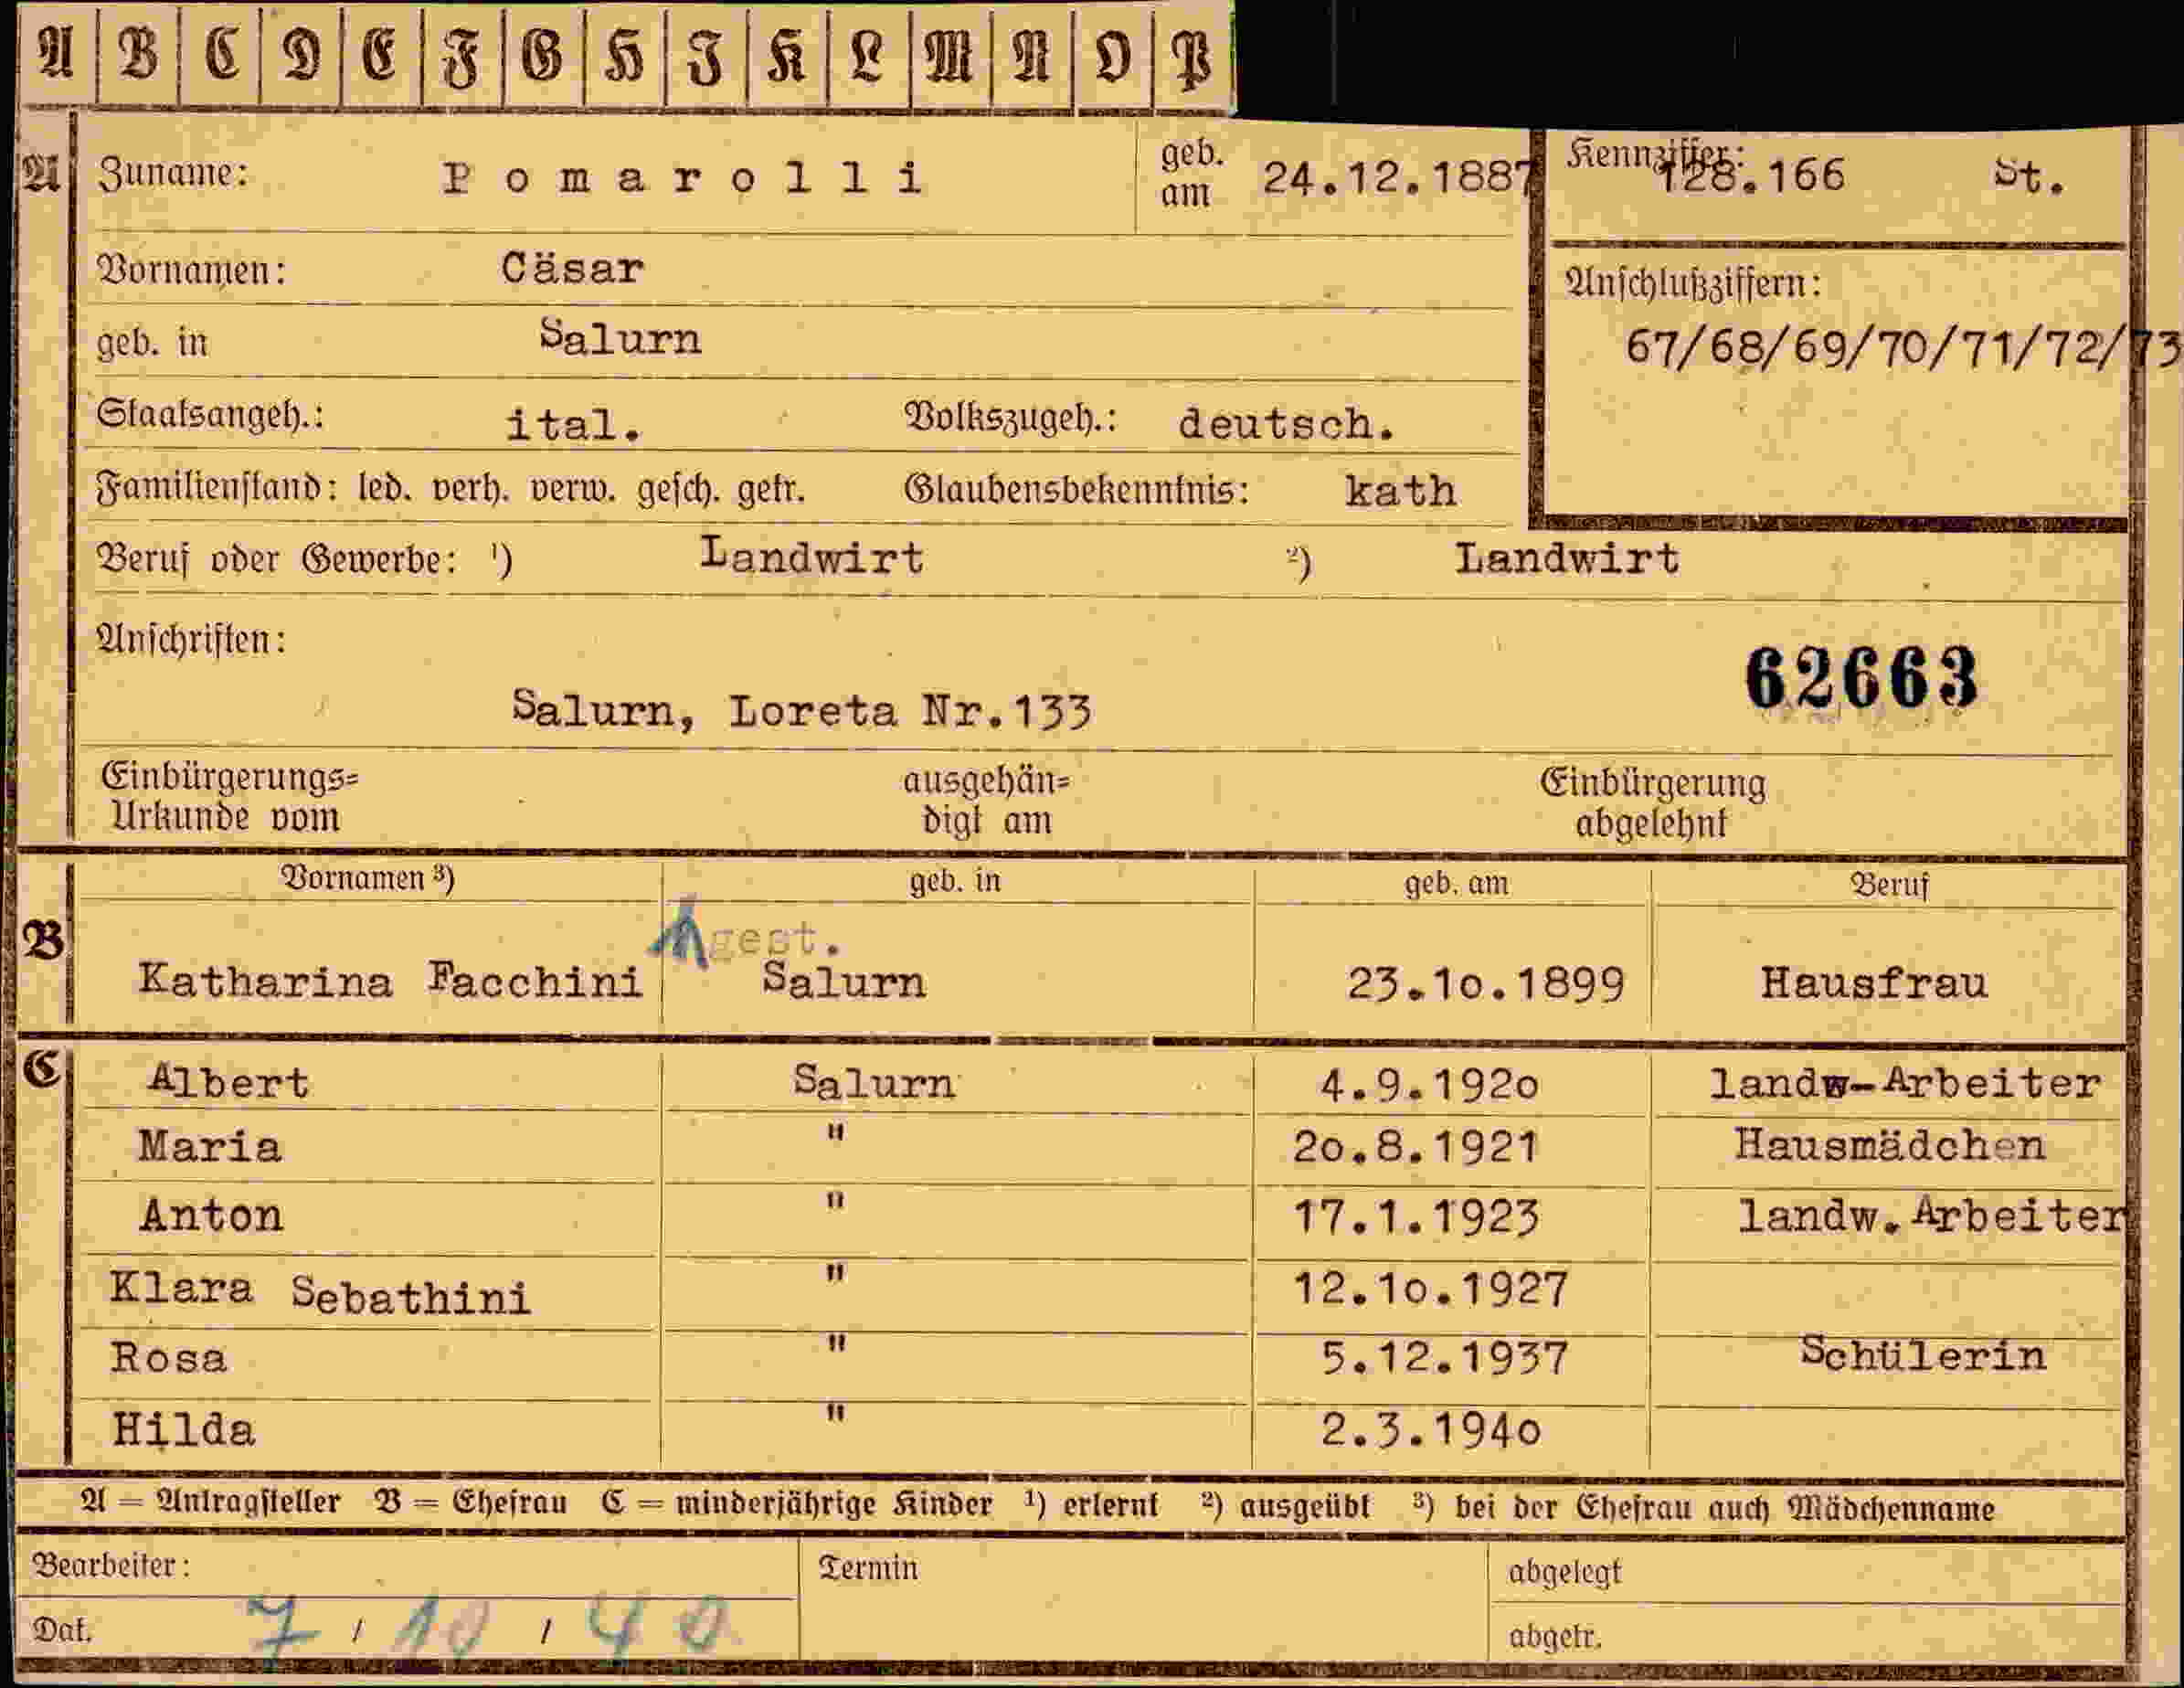 A B C D E F G H I K L M N O P
A Zuname: Pomarolli geb. am 24.12.1887 Kennziffer: 128.166 St.
Vornamen: Cäsar
Anschlußziffern:
geb. in Salurn 67/68/69/70/71/72/73
Staatsangeh.: ital. Volkszugeh.: deutsch.
Familienstand: led. verh. verw. gesch. getr. Glaubensbekenntnis: kath
Beruf oder Gewerbe: ¹) Landwirt ²) Landwirt
Anschriften:
62663
Salurn, Loreta Nr.133
Einbürgerungs= ausgehän= Einbürgerung
Urkunde vom digt am abgelehnt
Vornamen ³) geb. in geb. am Beruf
B gest.
Katharina Facchini Salurn 23.10.1899 Hausfrau
C Albert Salurn 4.9.1920 landw-Arbeiter
Maria " 20.8.1921 Hausmädchen
Anton " 17.1.1923 landw.Arbeiter
Klara Sebathini " 12.10.1927
Rosa " 5.12.1937 Schülerin
Hilda " 2.3.1940
A = Antragsteller B = Ehefrau C = minderjährige Kinder ¹) erlernt ²) ausgeübt ³) bei der Ehefrau auch Mädchenname
Bearbeiter: Termin abgelegt
Dat. 7 / 10 / 40 abgetr.